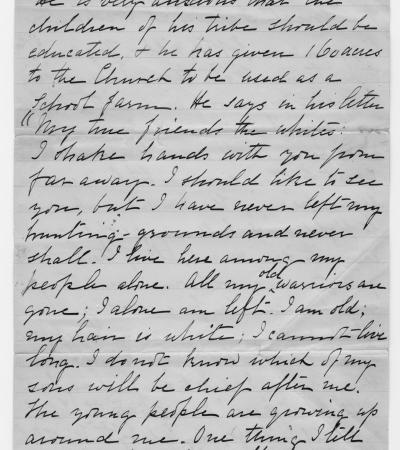 He is very anxious that the
children of his tribe should be
educated, & he has given 160 acres
to the Church to be used as a
School farm. He says in his letter
"My true friends the whites:
I shake hands with you from
far away. I should like to see
you, but I have never left my
hunting-grounds and never
shall. I live here among my
people alone. All my old warriors are
gone; I alone am left. I am old;
my hair is white; I cannot live
long. I do not know which of my
sons will be chief after me.
The young people are growing up
around me. One thing I tell